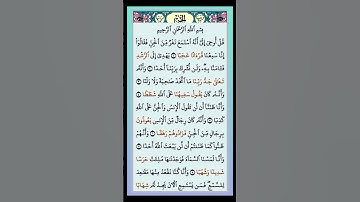 الجن
بِسْمِ اللَّهِ الرَّحْمَٰنِ الرَّحِيمِ
قُلْ أُوحِيَ إِلَيَّ أَنَّهُ اسْتَمَعَ نَفَرٌ مِّنَ الْجِنِّ فَقَالُوٓا
إِنَّا سَمِعْنَا قُرْءَانًا عَجَبًا ۝ يَهْدِيٓ إِلَى الرُّشْدِ
فَـَٔامَنَّا بِهِۦ وَلَن نُّشْرِكَ بِرَبِّنَآ أَحَدًا ۝ وَأَنَّهُۥ
تَعَٰلَىٰ جَدُّ رَبِّنَا مَا اتَّخَذَ صَٰحِبَةً وَلَا وَلَدًا ۝
وَأَنَّهُۥ كَانَ يَقُولُ سَفِيهُنَا عَلَى اللَّهِ شَطَطًا ۝
وَأَنَّا ظَنَنَّآ أَن لَّن تَقُولَ الْإِنسُ وَالْجِنُّ عَلَى اللَّهِ
كَذِبًا ۝ وَأَنَّهُۥ كَانَ رِجَالٌ مِّنَ الْإِنسِ يَعُوذُونَ
بِرِجَالٍ مِّنَ الْجِنِّ فَزَادُوهُمْ رَهَقًا ۝ وَأَنَّهُمْ
ظَنُّوا كَمَا ظَنَنتُمْ أَن لَّن يَبْعَثَ اللَّهُ أَحَدًا ۝
وَأَنَّا لَمَسْنَا السَّمَآءَ فَوَجَدْنَٰهَا مُلِئَتْ حَرَسًا
شَدِيدًا وَشُهُبًا ۝ وَأَنَّا كُنَّا نَقْعُدُ مِنْهَا مَقَٰعِدَ
لِلسَّمْعِ فَمَن يَسْتَمِعِ الْـَٔانَ يَجِدْ لَهُۥ شِهَابًا